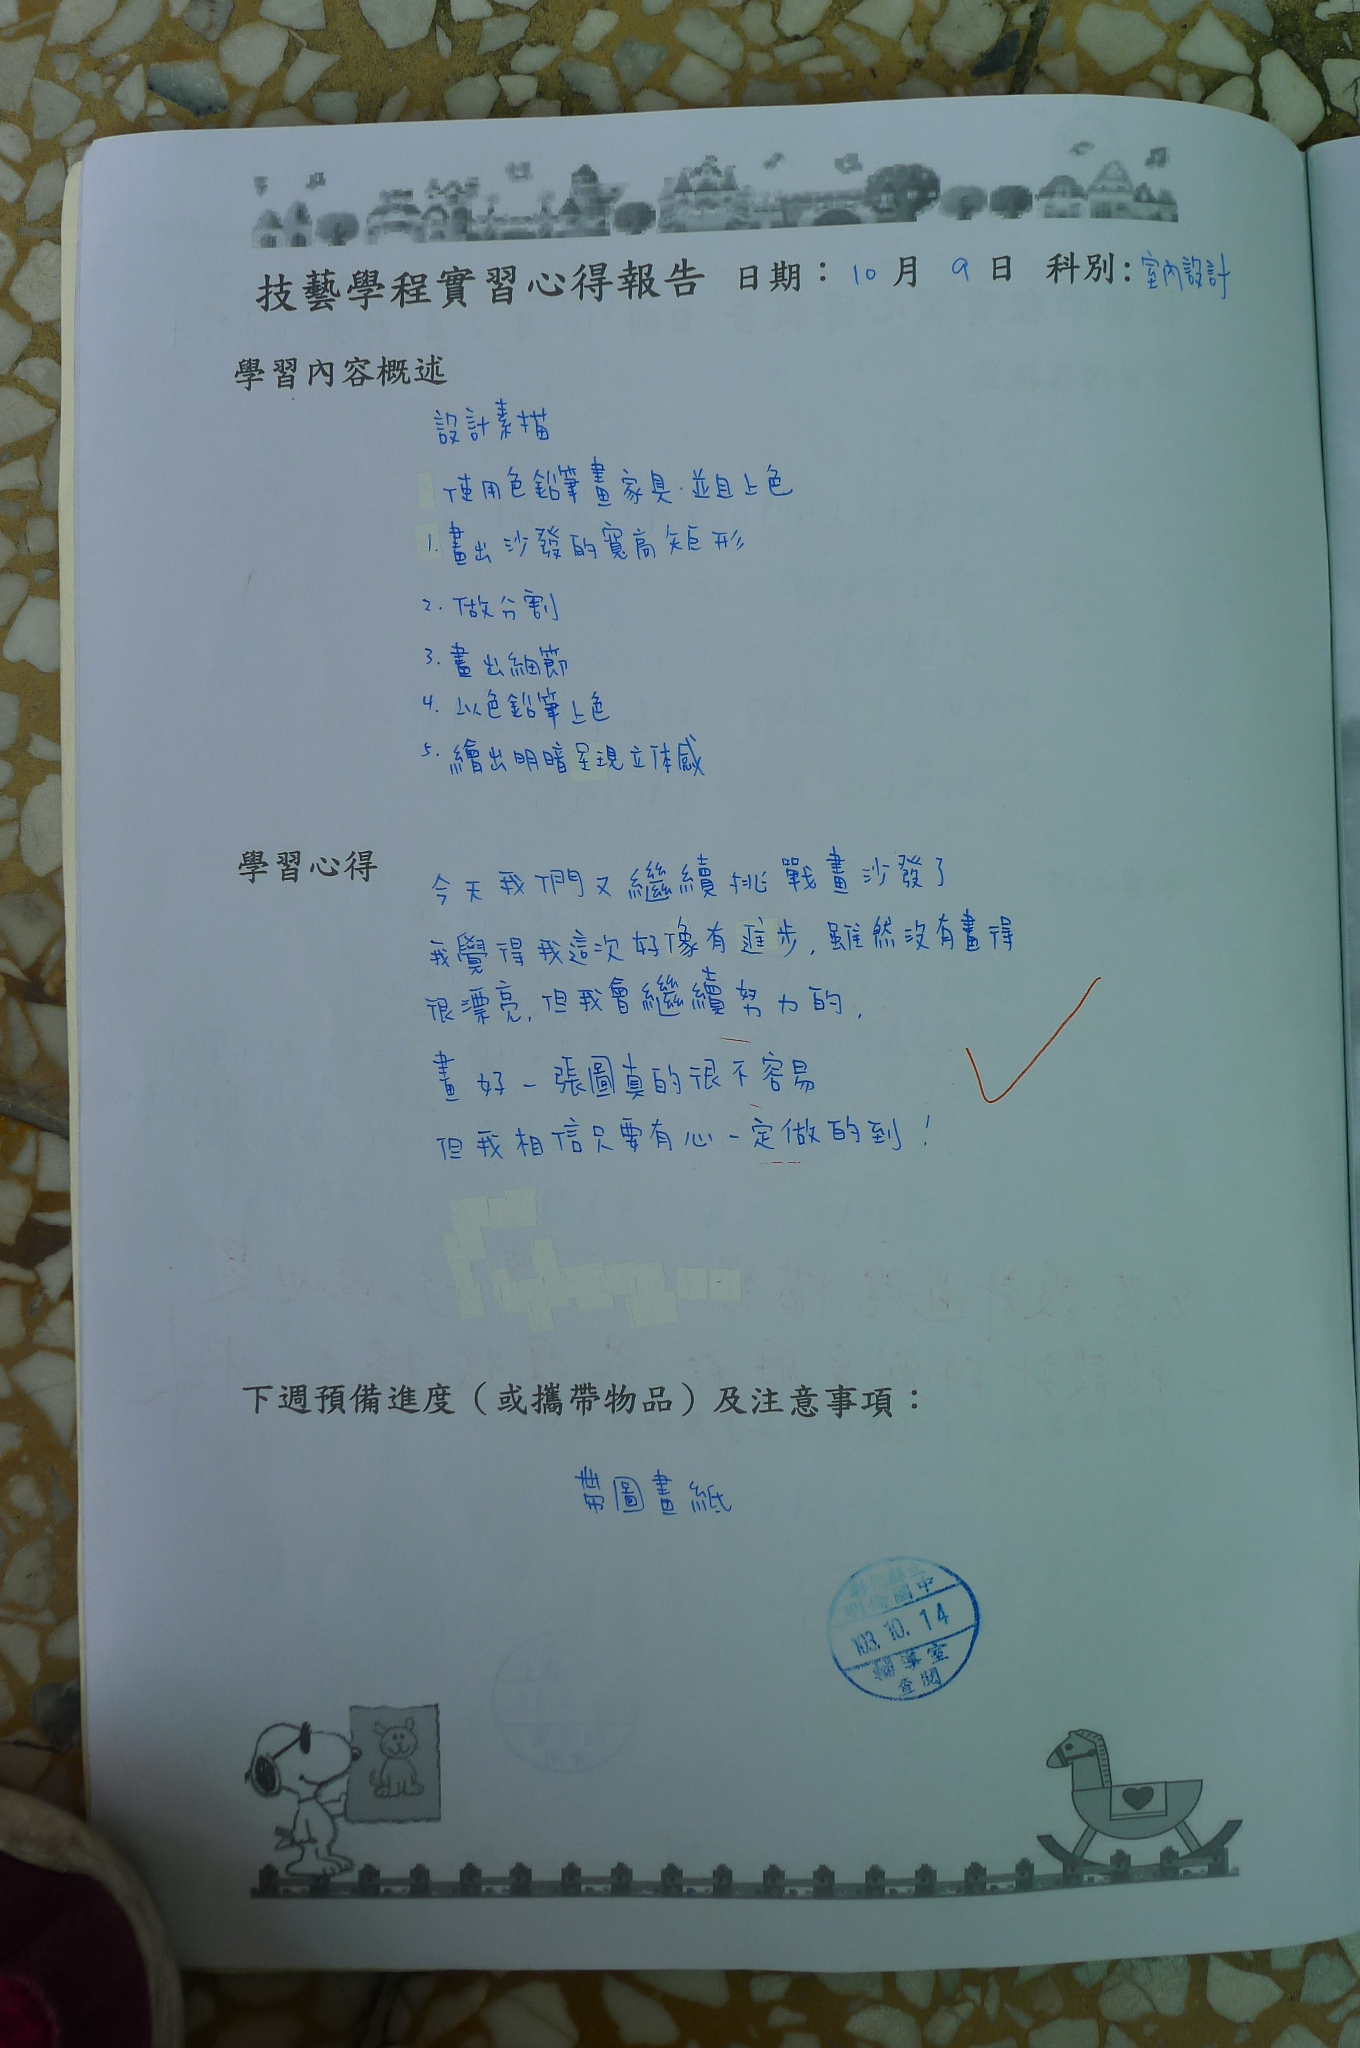 技藝學程實習心得報告 日期：10月 9日 科別:室內設計
學習內容概述
設計素描
使用色鉛筆畫家具.並且上色
1.畫出沙發的寬高矩形
2.做分割
3.畫出細節
4.以色鉛筆上色
5.繪出明暗呈現立体感
學習心得
今天我們又繼續挑戰畫沙發了
我覺得我這次好像有進步,雖然沒有畫得
很漂亮,但我會繼續努力的,
畫好一張圖真的很不容易
但我相信只要有心一定做的到！
下週預備進度（或攜帶物品）及注意事項：
帶圖畫紙
彰化縣立
明倫國中
103.10.14
輔導室
查閱